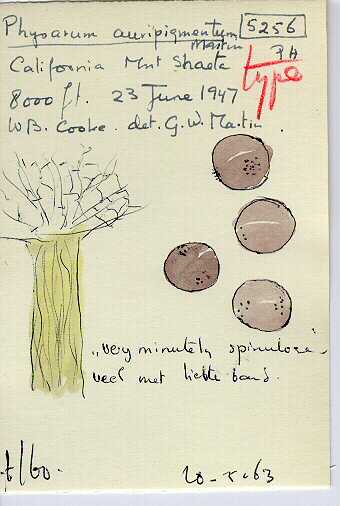 Physarum auripigmentum 5256
Martin PA
California Mnt Shasta type
8000 ft. 23 June 1947
W.B. Cooke. det. G.W. Martin.
„very minutely spinulose"
veel met lichte band.
20-X-63